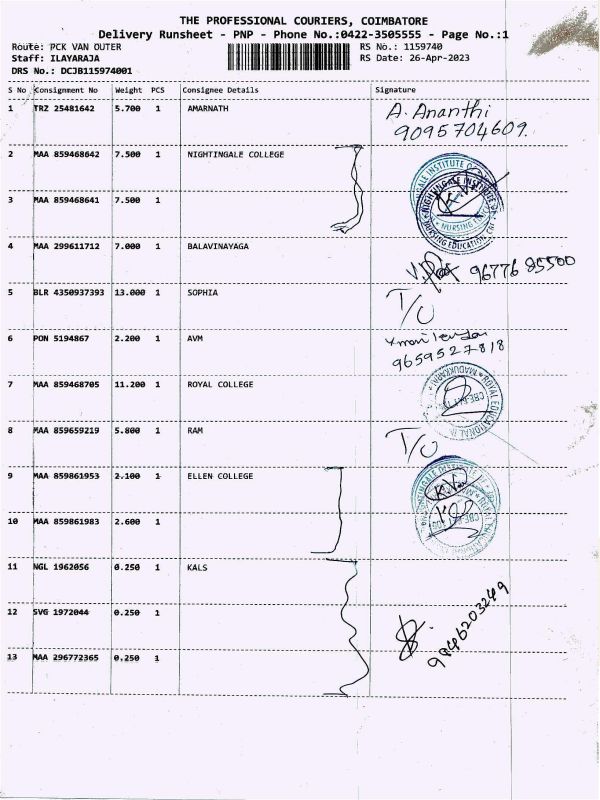 THE PROFESSIONAL COURIERS, COIMBATORE
Delivery Runsheet - PNP - Phone No.:0422-3505555 - Page No.:1
Route: PCK VAN OUTER RS No.: 1159740
Staff: ILAYARAJA RS Date: 26-Apr-2023
DRS No.: DCJB115974001
S No Consignment No Weight PCS Consignee Details Signature
1 TRZ 25481642 5.700 1 AMARNATH A. Ananthi
9095704609.
2 MAA 859468642 7.500 1 NIGHTINGALE COLLEGE
NIGHTINGALE INSTITUTE OF
NURSING EDUCATION
3 MAA 859468641 7.500 1
4 MAA 299611712 7.000 1 BALAVINAYAGA
96776 85500
5 BLR 4350937393 13.000 1 SOPHIA T/O
6 PON 5194867 2.200 1 AVM
9659527818
7 MAA 859468705 11.200 1 ROYAL COLLEGE
ROYAL EDUCATIONAL
8 MAA 859659219 5.800 1 RAM T/O
9 MAA 859861953 2.100 1 ELLEN COLLEGE
10 MAA 859861983 2.600 1
11 NGL 1962056 0.250 1 KALS
12 SVG 1972044 0.250 1
9846203249
13 MAA 296772365 0.250 1